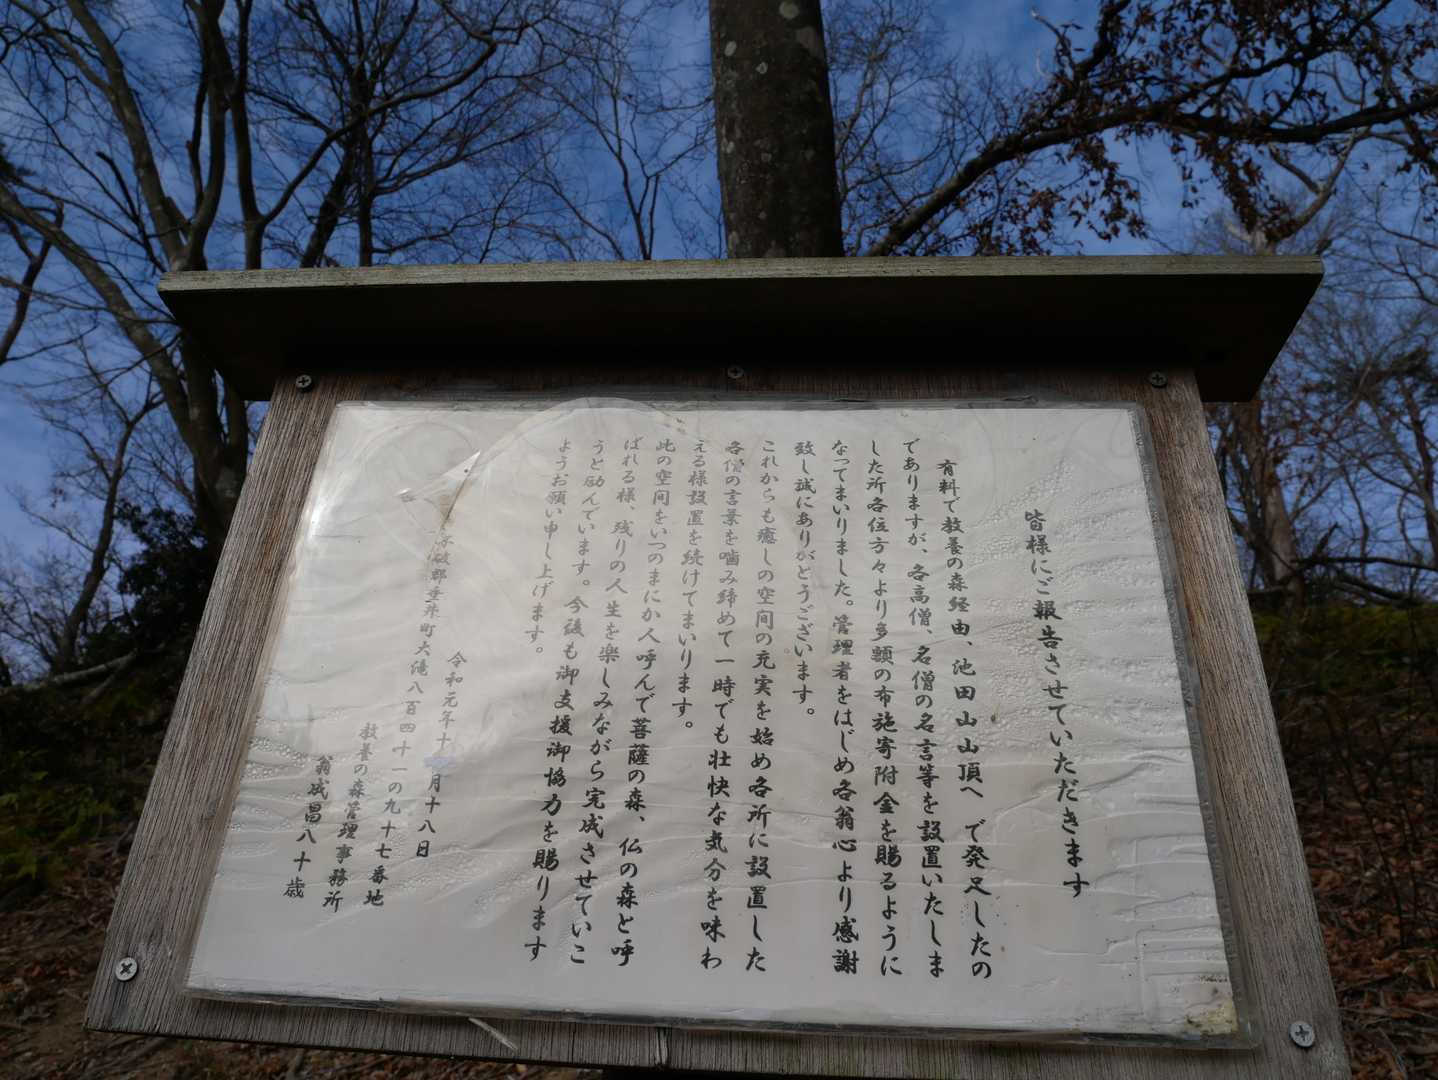 皆様にご報告させていただきます
有料で教養の森経由、池田山山頂へ で発足したの
でありますが、各高僧、名僧の名言等を設置いたしま
した所各位方々より多額の布施寄附金を賜るように
なってまいりました。管理者をはじめ各翁心より感謝
致し誠にありがとうございます。
これからも癒しの空間の充実を始め各所に設置した
各僧の言葉を噛み締めて一時でも壮快な気分を味わ
える様設置を続けてまいります。
此の空間をいつのまにか人呼んで菩薩の森、仏の森と呼
ばれる様、残りの人生を楽しみながら完成させていこ
うと励んでいます。今後も御支援御協力を賜ります
ようお願い申し上げます。
令和元年十 月十八日
破郡垂井町大滝八百四十一の九十七番地
教養の森管理事務所
翁成昌八十歳